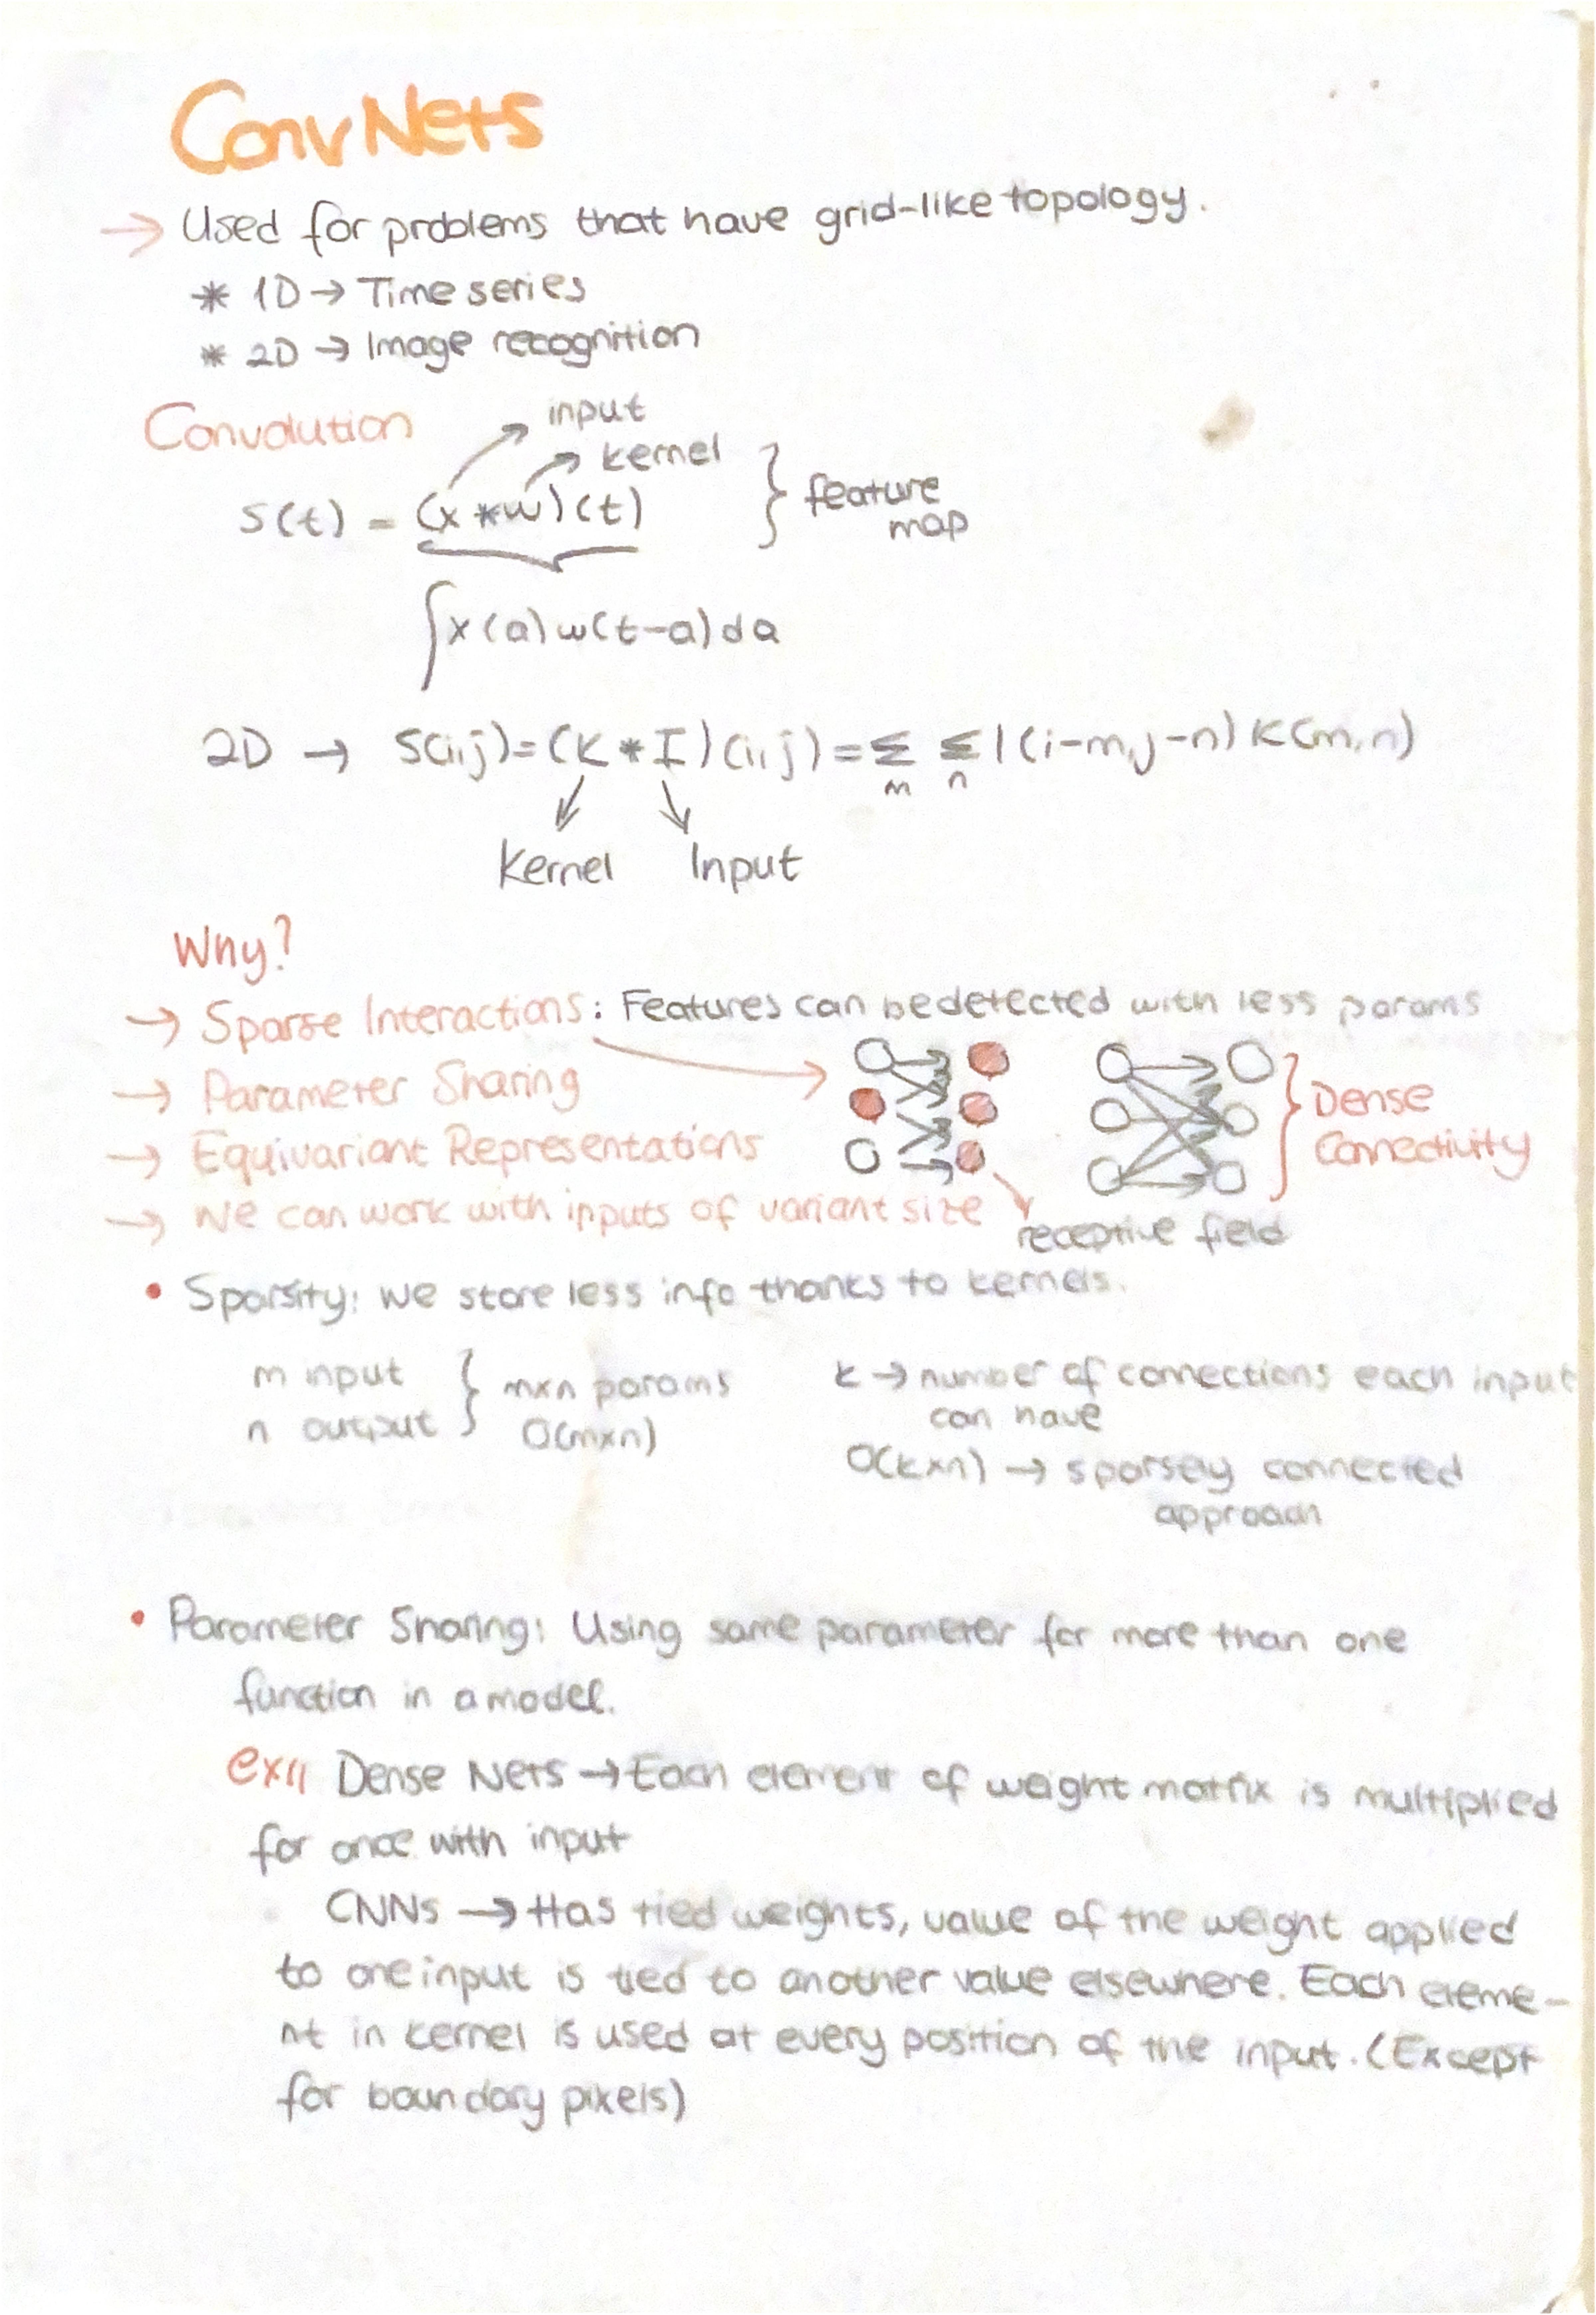 ConvNets
→ Used for problems that have grid-like topology.
* 1D → Time series
* 2D → Image recognition
Convolution
input
kernel
S(t) = (x * w)(t) } feature
map
∫x(a)w(t-a)da
2D → S(i,j) = (K * I)(i,j) = Σ Σ I(i-m,j-n) K(m,n)
m n
Kernel Input
Why?
→ Sparse Interactions: Features can be detected with less params
→ Parameter Sharing
→ Equivariant Representations
→ We can work with inputs of variant size
Dense
Connectivity
receptive field
• Sparsity: we store less info thanks to kernels.
m input
n output
} mxn params
O(mxn)
k → number of connections each input
can have
O(kxn) → sparsely connected
approach
• Parameter Sharing: Using same parameter for more than one
function in a model.
ex// Dense Nets → Each element of weight matrix is multiplied
for once with input
CNNs → Has tied weights, value of the weight applied
to one input is tied to another value elsewhere. Each eleme-
nt in kernel is used at every position of the input. (Except
for boundary pixels)